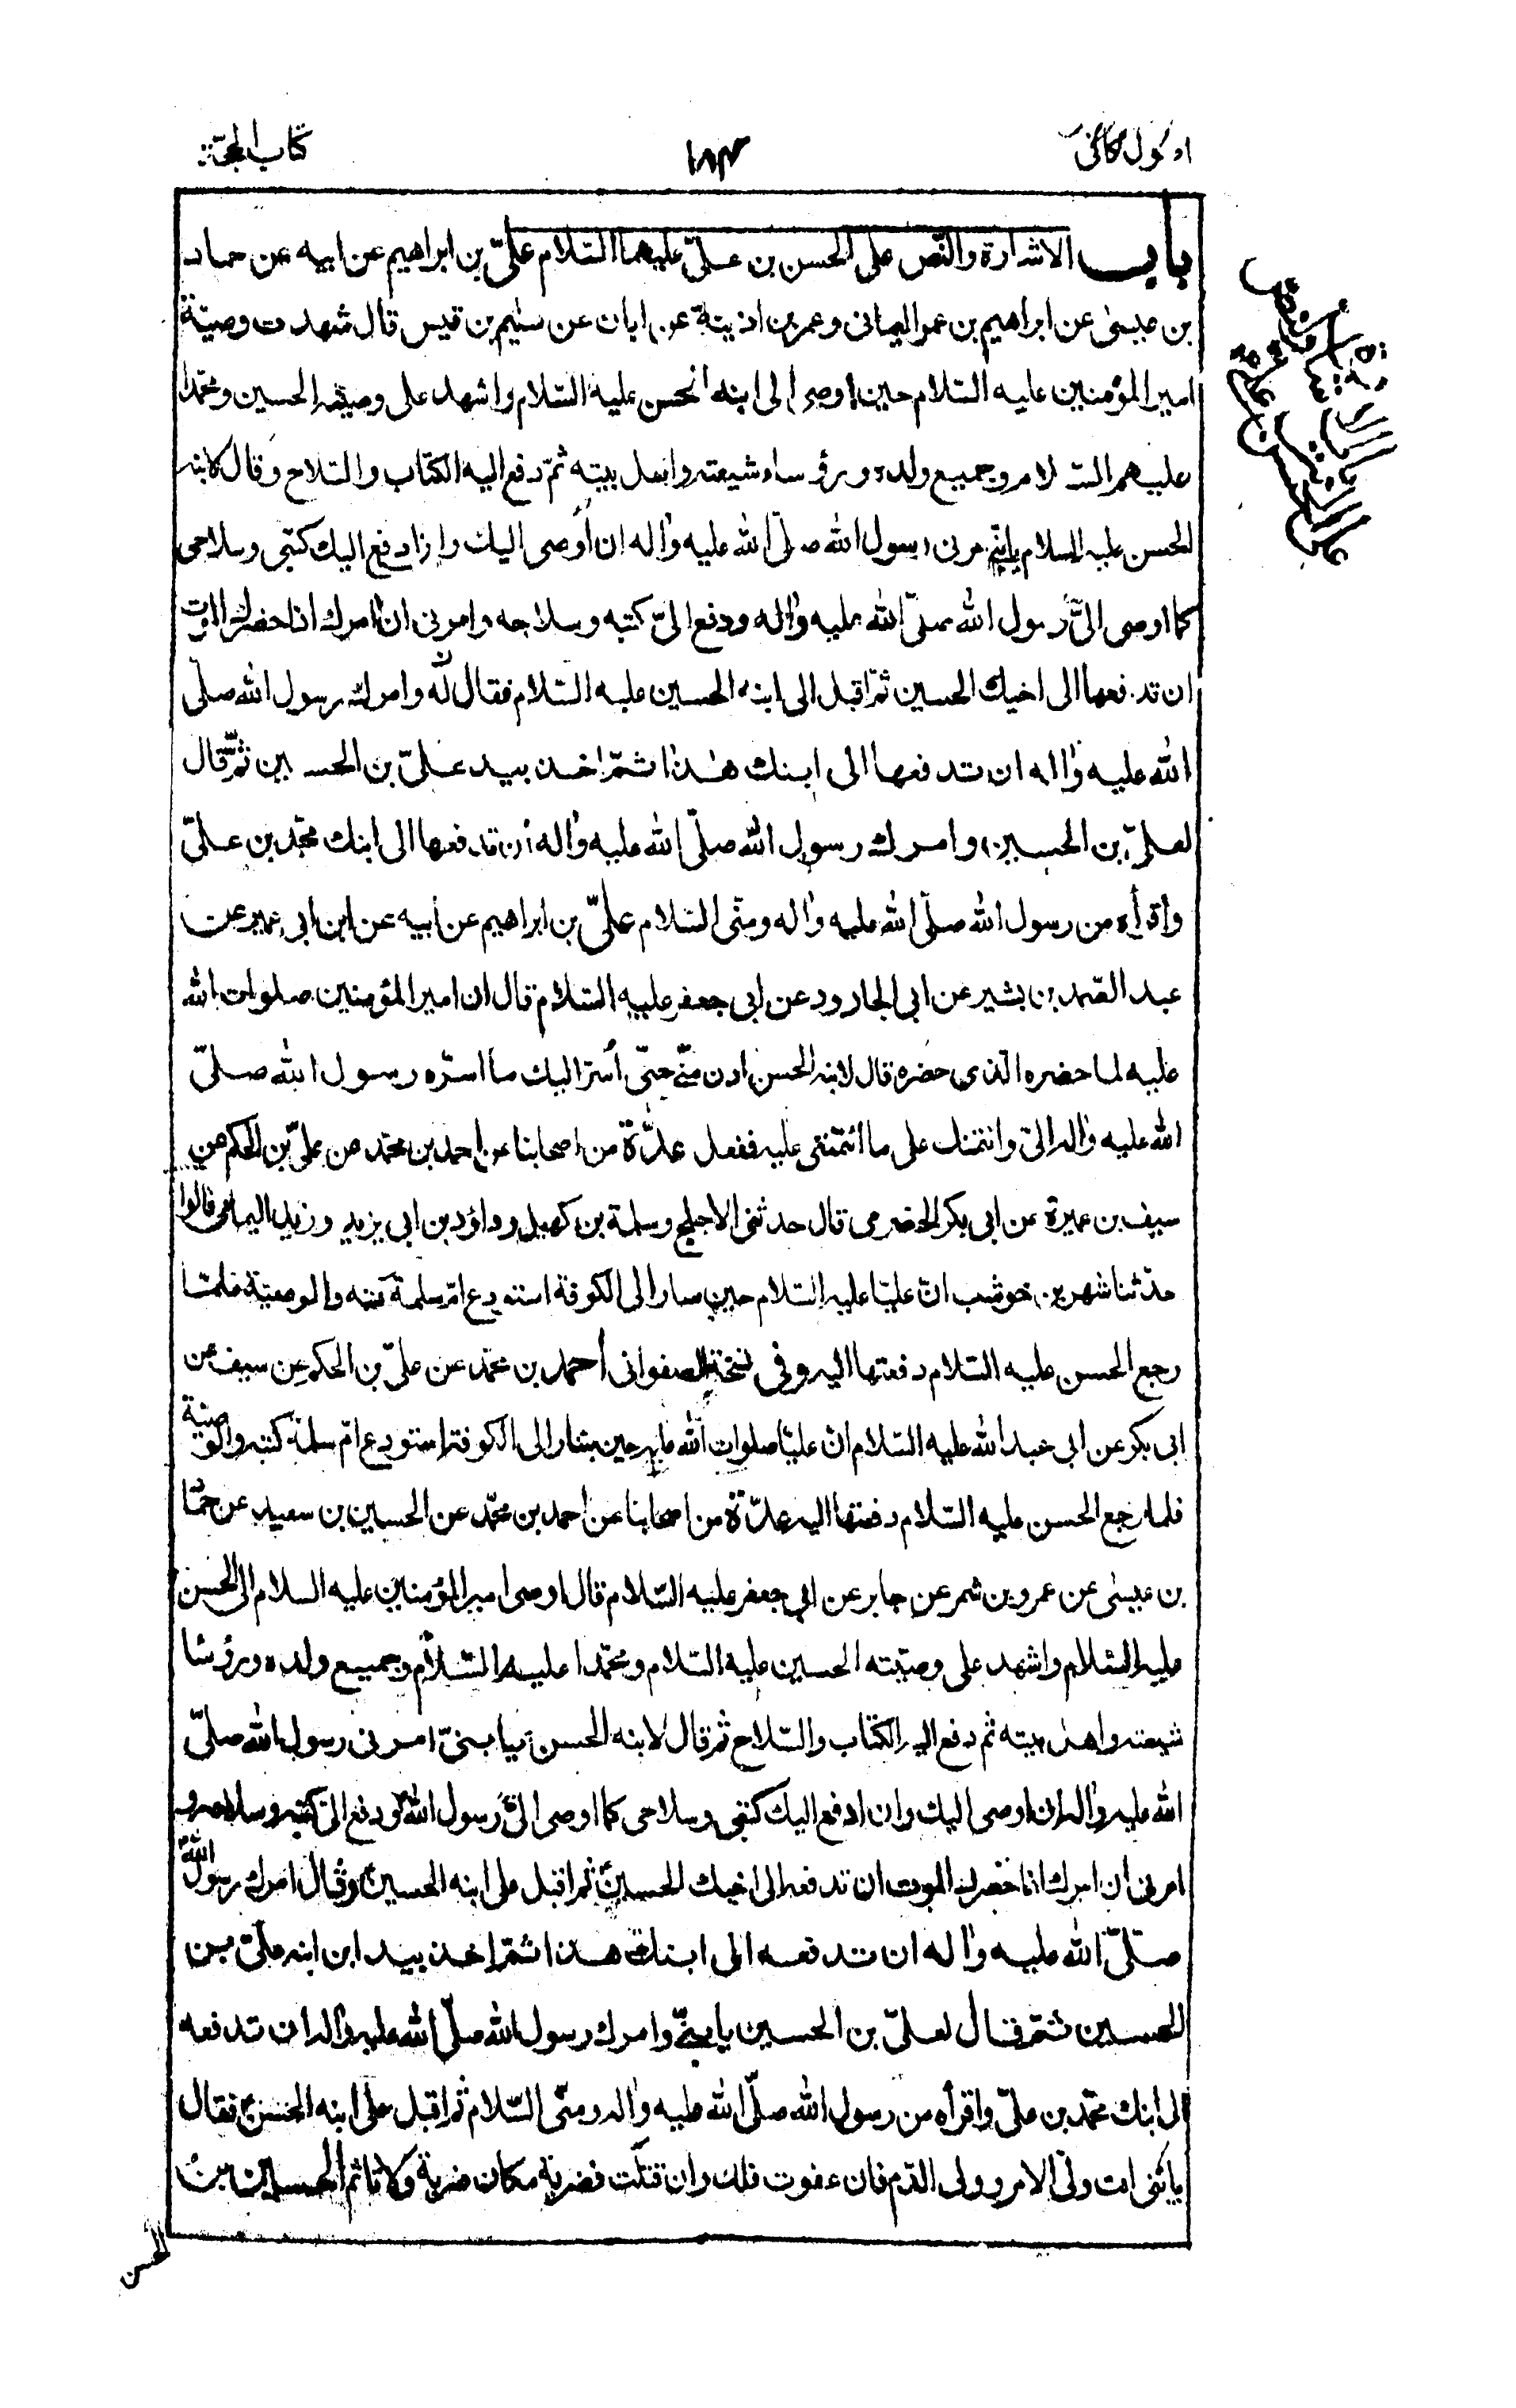 اصول كافى ١٨٣ كتاب الحجّة
باب الاشارة والنّص على الحسن بن علىّ عليهما السّلام علىّ بن ابراهيم عن ابيه عن حماد
بن عيسىٰ عن ابراهيم بن عمر اليمانى وعمر بن اذينة عن ابان عن سليم بن قيس قال شهدت وصيّة
امير المؤمنين عليه السّلام حين اوصى الى ابنه الحسن عليه السّلام واشهد على وصيّته الحسين ومحمّدا
عليهم السّلام وجميع ولده ورؤساء شيعته واهل بيته ثمّ دفع اليه الكتاب والسّلاح وقال لابنه
الحسن عليه السلام يا بنىّ امرنى رسول الله صلّى الله عليه واٰله ان اُوصى اليك وان ادفع اليك كتبى وسلاحى
كما اوصى الىّ رسول الله صلّى الله عليه واٰله ودفع الىّ كتبه وسلاحه وامرنى ان اٰمرك اذا حضرك الموت
ان تدفعها الى اخيك الحسين ثمّ اقبل الى ابنه الحسين عليه السّلام فقال له وامرك رسول الله صلّى
الله عليه واٰله ان تدفعها الى ابنك هٰذا ثمّ اخذ بيد علىّ بن الحسين ثمّ قال
لعلىّ بن الحسين وامرك رسول الله صلّى الله عليه واٰله ان تدفعها الى ابنك محمّد بن علىّ
واقرأه من رسول الله صلّى الله عليه واٰله ومنّى السّلام علىّ بن ابراهيم عن ابيه عن ابن ابى عمير عن
عبد الصّمد بن بشير عن ابى الجارود عن ابى جعفر عليه السّلام قال ان امير المؤمنين صلوات الله
عليه لما حضره الّذى حضره قال لابنه الحسن ادن منّى حتّى اُسرّ اليك ما اسرّه رسول الله صلّى
الله عليه واٰله الىّ وائتمنك على ما ائتمننى عليه ففعل عدّة من اصحابنا عن احمد بن محمّد عن علىّ بن الحكم عن
سيف بن عميرة عن ابى بكر الحضرمى قال حدثنى الاجلح وسلمة بن كهيل وداؤد بن ابى يزيد وزيد اليمامى قالوا
حدّثنا شهر بن حوشب انّ عليّا عليه السّلام حين سار الى الكوفة استودع امّ سلمة كتبه والوصيّة فلمّا
رجع الحسن عليه السّلام دفعتها اليه وفى نسخة الصفوانى أحمد بن محمّد عن علىّ بن الحكم عن سيف عن
ابى بكر عن ابى عبد الله عليه السّلام انّ عليّا صلوات الله عليه حين سار الى الكوفة استودع امّ سلمة كتبه والوصيّة
فلما رجع الحسن عليه السّلام دفعتها اليه عدّة من اصحابنا عن احمد بن محمّد عن الحسين بن سعيد عن حمّا
بن عيسىٰ عن عمرو بن شمر عن جابر عن ابى جعفر عليه السّلام قال اوصى امير المؤمنين عليه السلام الى الحسن
عليه السّلام واشهد على وصيّته الحسين عليه السّلام ومحمّدا عليه السّلام وجميع ولده ورؤسا
شيعته واهل بيته ثم دفع اليه الكتاب والسّلاح ثم قال لابنه الحسن يا بنىّ امرنى رسول الله صلّى
الله عليه واٰله ان اوصى اليك وان ادفع اليك كتبى وسلاحى كما اوصى الىّ رسول الله ودفع الىّ كتبه وسلاحه و
امرنى ان اٰمرك اذا حضرك الموت ان تدفعه الى اخيك الحسين ثم اقبل على ابنه الحسين وقال امرك رسول الله
صلّى الله عليه واٰله ان تدفعه الى ابنك هذا ثمّ اخذ بيد ابن ابنه علىّ بن
الحسين ثمّ قال لعلىّ بن الحسين يا بنىّ وامرك رسول الله صلّى الله عليه واٰله ان تدفعه
الى ابنك محمّد بن علىّ واقرأه من رسول الله صلّى الله عليه واٰله ومنّى السّلام ثم اقبل على ابنه الحسن فقال
يا بنى انت ولىّ الامر وولى الدّم فان عفوت فلك وان قتلت فضربة مكان ضربة ولا تأثم الحسين بن
الحسن